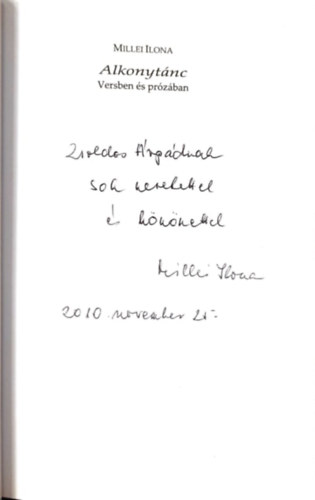 MILLEI ILONA
Alkonytánc
Versben és prózában
Zsoldos Árpádnak
sok szeretettel
és köszönettel
Millei Ilona
2010. november 25.